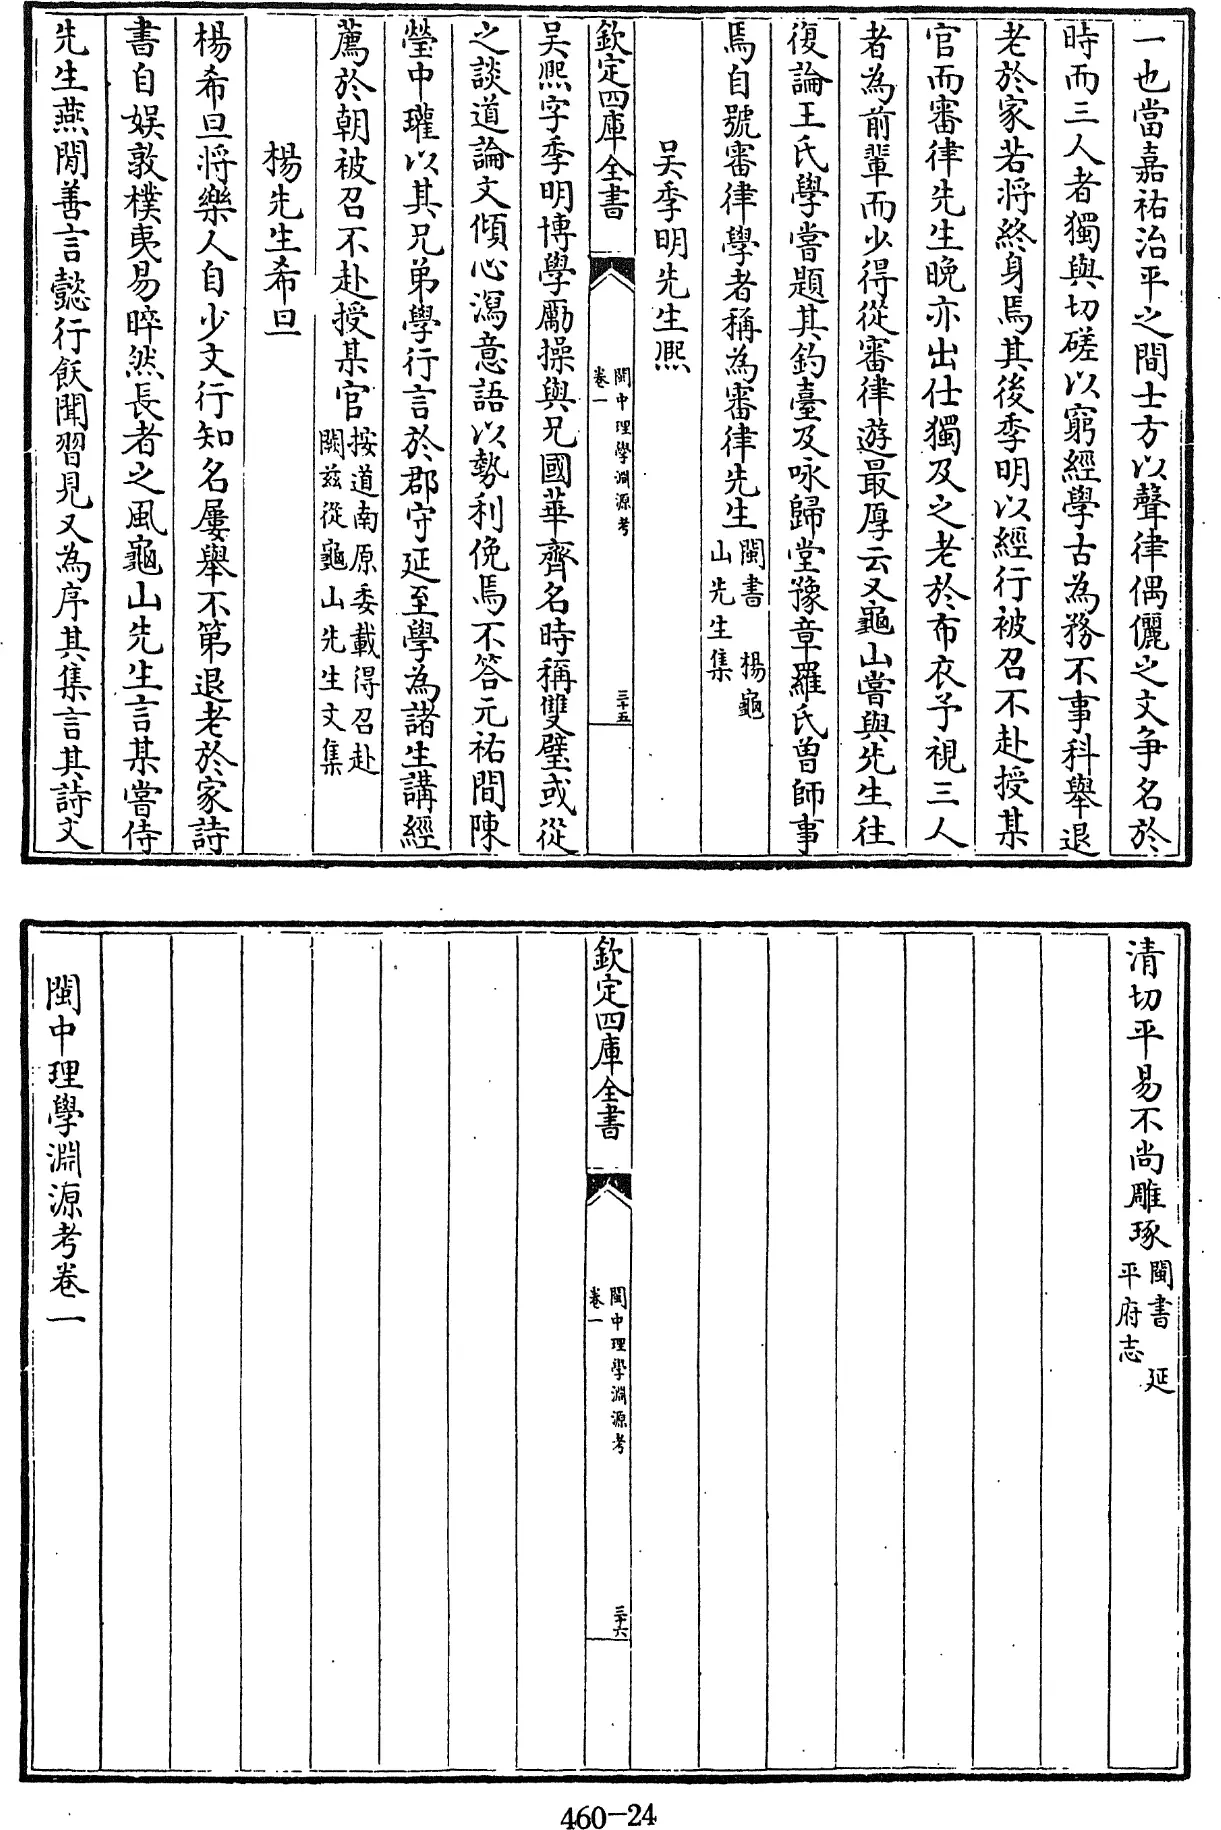 一也當嘉祐治平之間士方以聲律偶儷之文争名於
時而三人者獨與切磋以窮經學古為務不事科舉退
老於家若將終身焉其後季明以經行被召不赴授某
官而審律先生晚亦出仕獨及之老於布衣予視三人
者為前輩而少得從審律遊最厚云又龜山嘗與先生往
復論王氏學嘗題其釣臺及咏歸堂豫章羅氏曽師事
焉自號審律學者稱為審律先生閩書　楊龜
山先生集
吴季明先生熈
欽定四庫全書
閩中理學淵源考
卷一
三十五
吴熈字季明博學勵操與兄國華齊名時稱雙璧或從
之談道論文傾心瀉意語以勢利俛焉不答元祐間陳
瑩中瓘以其兄弟學行言於郡守延至學為諸生講經
薦於朝被召不赴授某官按道南原委載得召赴
闕兹從龜山先生文集
楊先生希旦
楊希旦将樂人自少文行知名屢舉不第退老於家詩
書自娱敦樸夷易晬然長者之風龜山先生言某嘗侍
先生燕閒善言懿行飫聞習見又為序其集言其詩文
清切平易不尚雕琢閩書　延
平府志
欽定四庫全書
閩中理學淵源考
卷一
三十六
閩中理學淵源考卷一
460-24